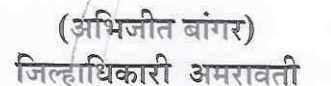 (अभिजीत बांगर)
जिल्हाधिकारी अमरावती